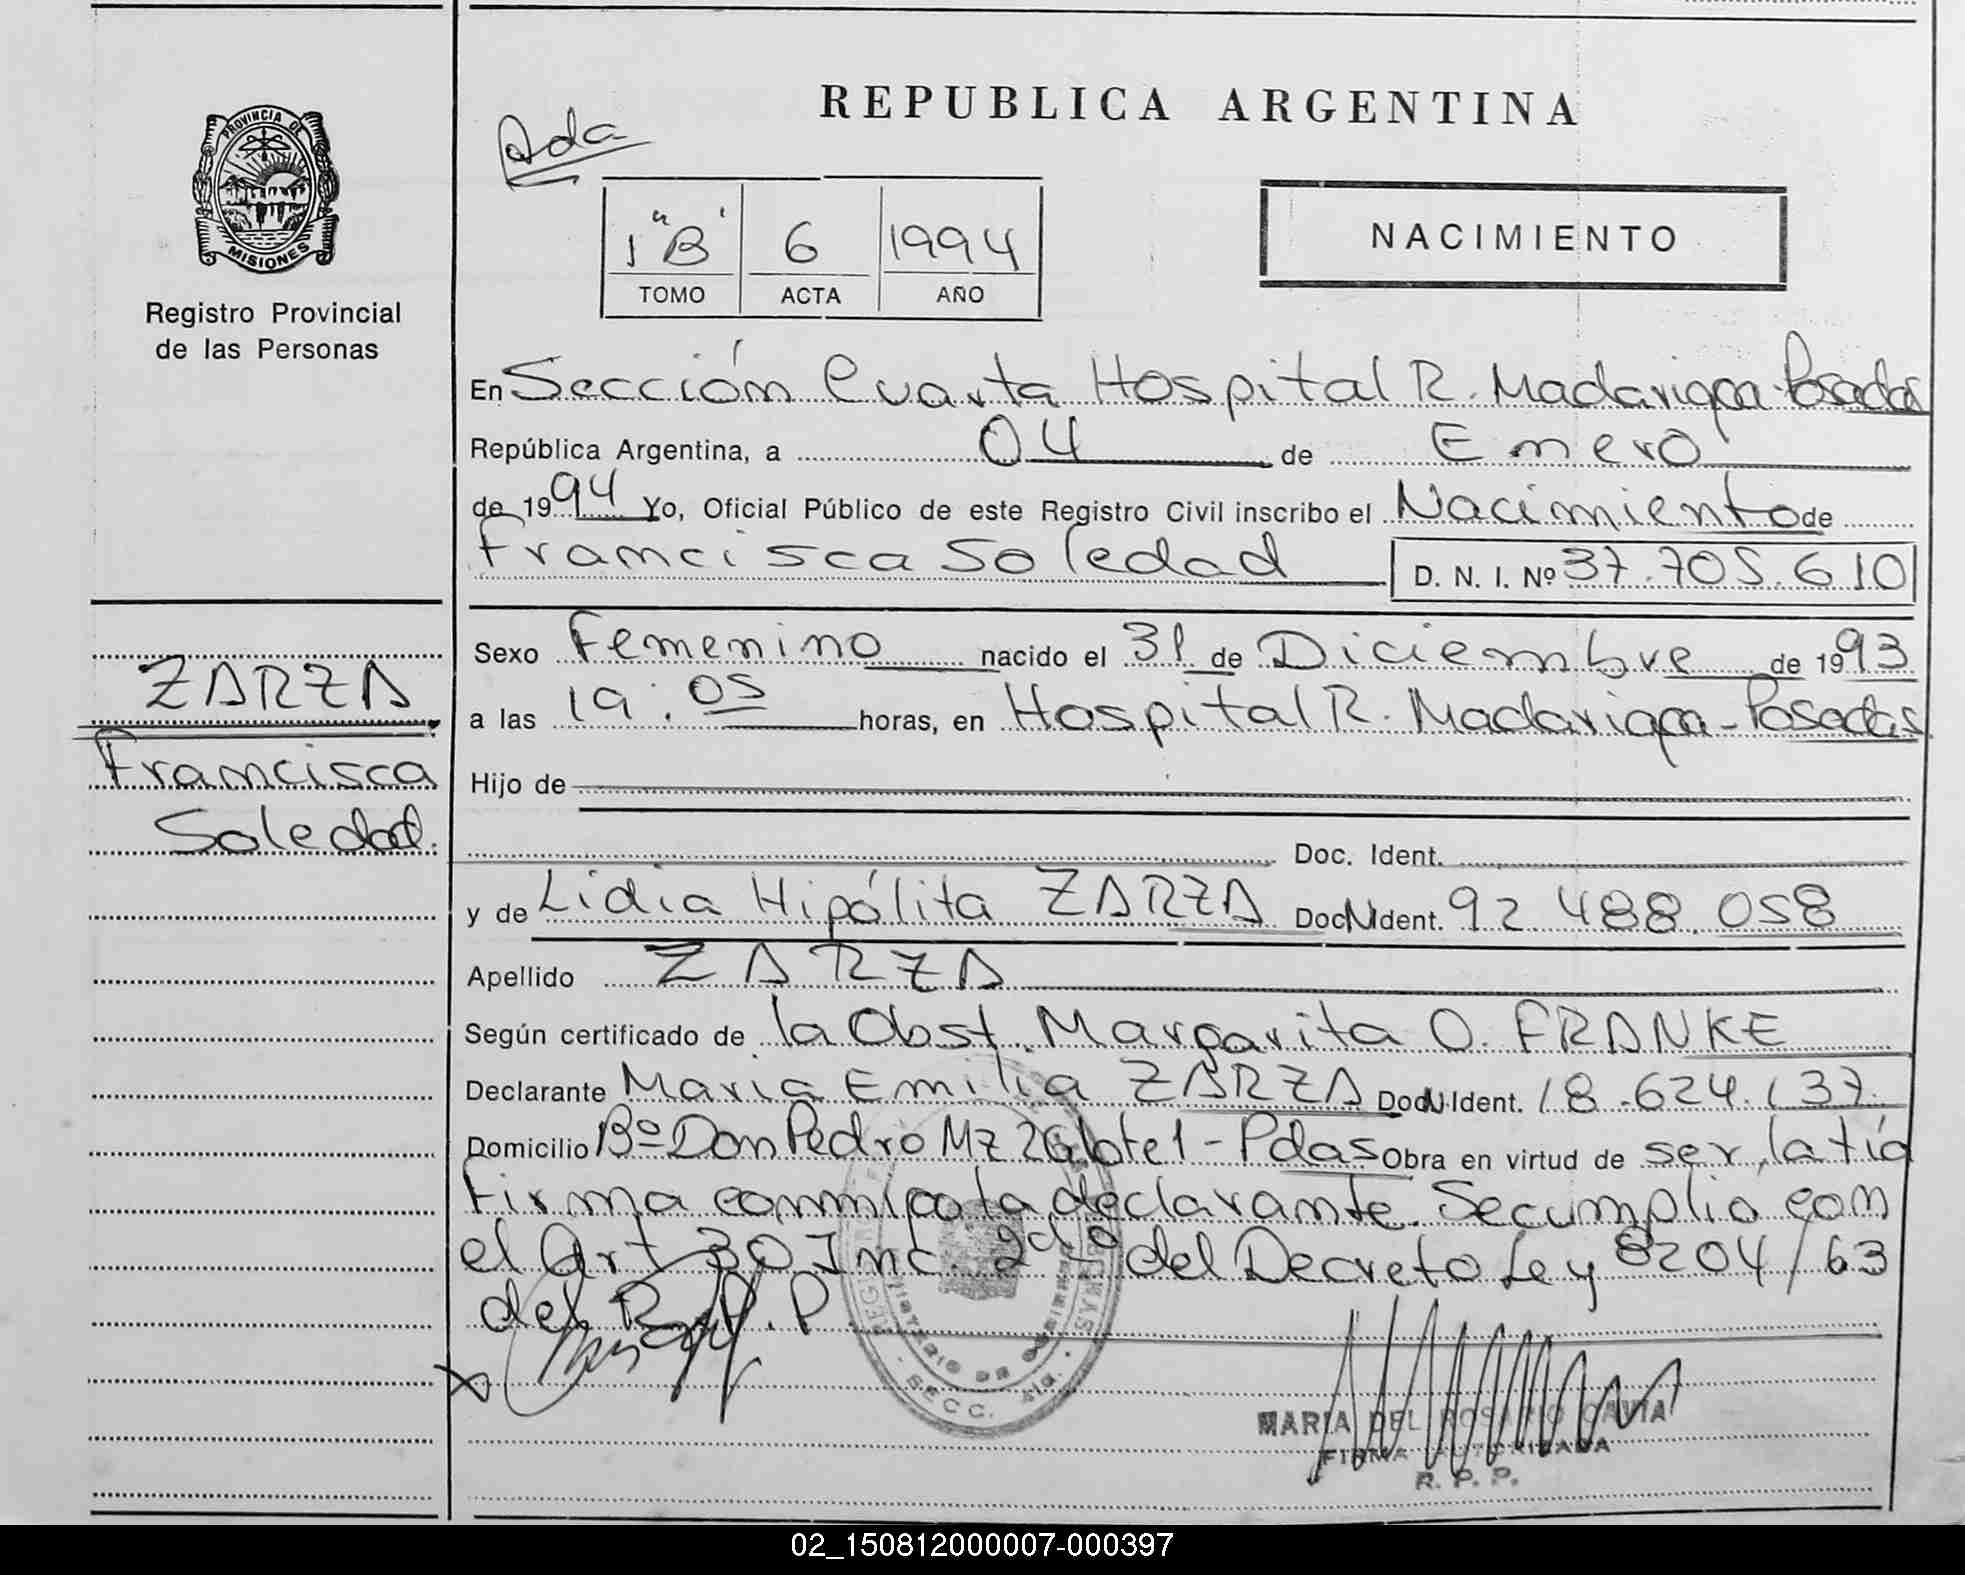 REPUBLICA ARGENTINA
Ada
PROVINCIA DE
MISIONES
Registro Provincial
de las Personas
1 "B" 6 1994
TOMO ACTA AÑO
NACIMIENTO
En Sección Cuarta Hospital R. Madariaga-Posadas
República Argentina, a 04 de Enero
de 1994 Yo, Oficial Público de este Registro Civil inscribo el Nacimiento de
Francisca Soledad D. N. I. Nº 37.705.610
ZARZA
Francisca
Soledad.
Sexo Femenino nacido el 31 de Diciembre de 1993
a las 19:05 horas, en Hospital R. Madariaga-Posadas
Hijo de
Doc. Ident.
y de Lidia Hipólita ZARZA Doc. N Ident. 92 488.058
Apellido ZARZA
Según certificado de la Obst. Margarita O. FRANKE
Declarante Maria Emilia ZARZA Doc. N Ident. 18.624.137
Domicilio Bº Don Pedro Mz 26 lote 1 - Pdas Obra en virtud de ser la tía
firma conmigo la declarante. Se cumplio con
el Art 30 Inc. 2do del Decreto Ley 8204/63
del R.P.P.
SECC. 4ta.
MARIA DEL ROSARIO
FIRMA AUTORIZADA
R. P. P.
02_150812000007-000397